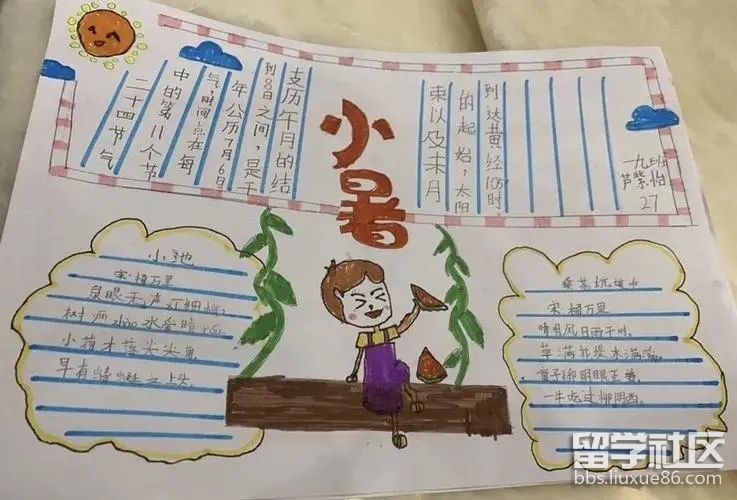 小暑
二十四节气
中的第11个节
气,时间点在每
年公历7月6日
到8日之间,是干
支历午月的结
束以及未月
的起始,太阳
到达黄经105°时
一九班
芦紫怡
27
小池
宋杨万里
泉眼无声 细流,
树阴zhào水爱晴róu,
小荷才落尖尖角,
早有蜻蜓立上头。
桑茶坑道中
宋杨万里
晴明风日雨干时,
草满花堤水满溪。
童子柳阴眠正着,
一牛吃过柳阴西。
留学社区
bbs.liuxue86.com